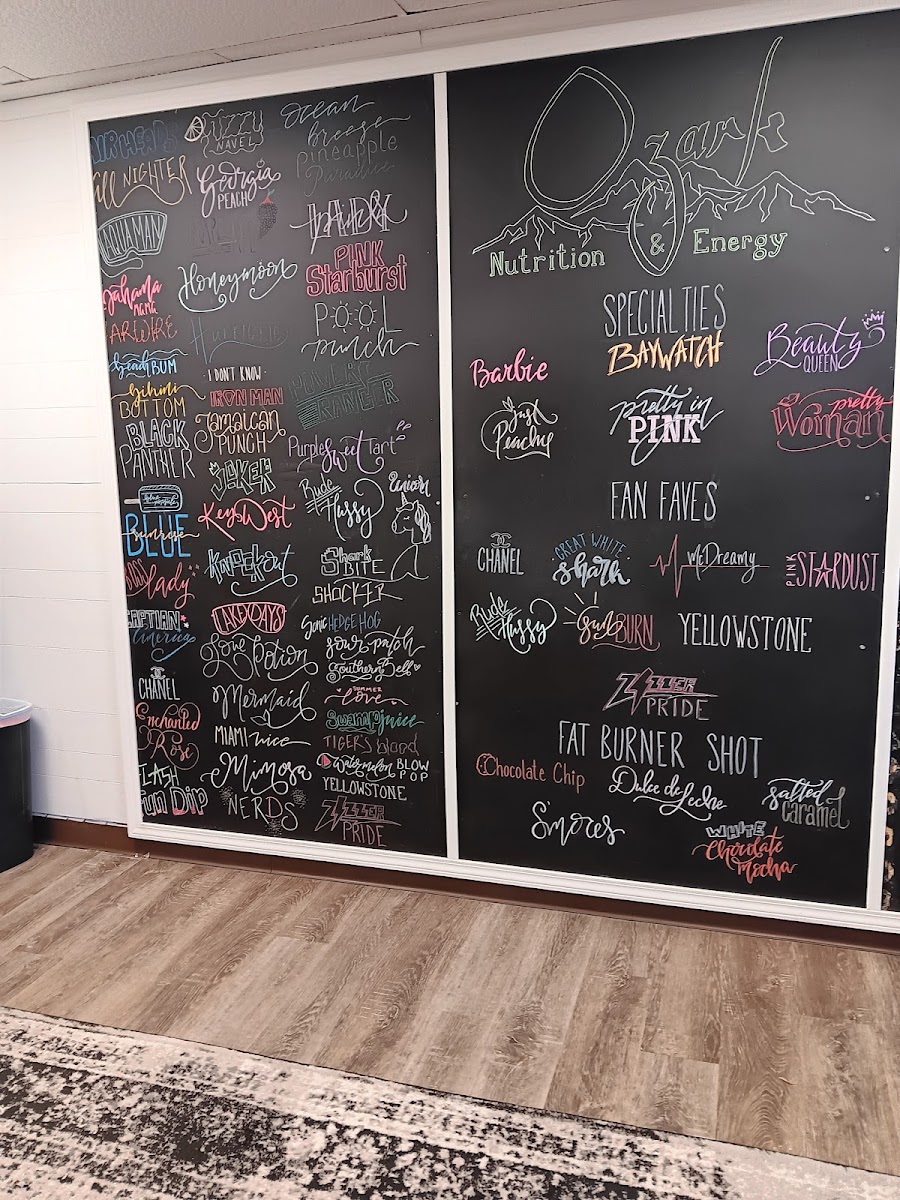 AIRHEADS
All NIGHTER
AQUAMAN
Bahama
mama
BARWIRE
Beach BUM
Bikini
BOTTOM
BLACK
PANTHER
BLUE
sunrise
BOSS
lady
CAPTIAN
America
CHANEL
Enchanted
Rose
FLASH
Fun Dip
FUZZY
NAVEL
Georgia
PEACH
Honeymoon
Hurricane
I DON'T KNOW
IRON MAN
Jamaican
PUNCH
JOKER
Key West
Knockout
LAKE DAYS
Love Potion
Mermaid
MIAMI vice
Mimosa
NERDS
Ocean
breeze
Pineapple
Paradise
PINK
Starburst
POOL
punch
POWERS
RANGER
Purple Sweet Tart
Rude
Hussy
Unicorn
Shark
BITE
SHOCKER
Sonic HEDGE HOG
Sour patch
Southern Bell
SUMMER
Love
Swamp juice
TIGERS blood
Watermelon BLOW
POP
YELLOWSTONE
ZIZZER
PRIDE
Ozark
Nutrition & Energy
SPECIALTIES
Barbie
BAYWATCH
Beauty
QUEEN
just
Peachy
pretty in
PINK
pretty
Woman
FAN FAVES
CHANEL
GREAT WHITE
shark
McDreamy
PINK STARDUST
Rude
Hussy
SunBURN
YELLOWSTONE
ZIZZER
PRIDE
FAT BURNER SHOT
Chocolate Chip
Dulce de Leche
salted
Caramel
S'mores
WHITE
Chocolate
Mocha